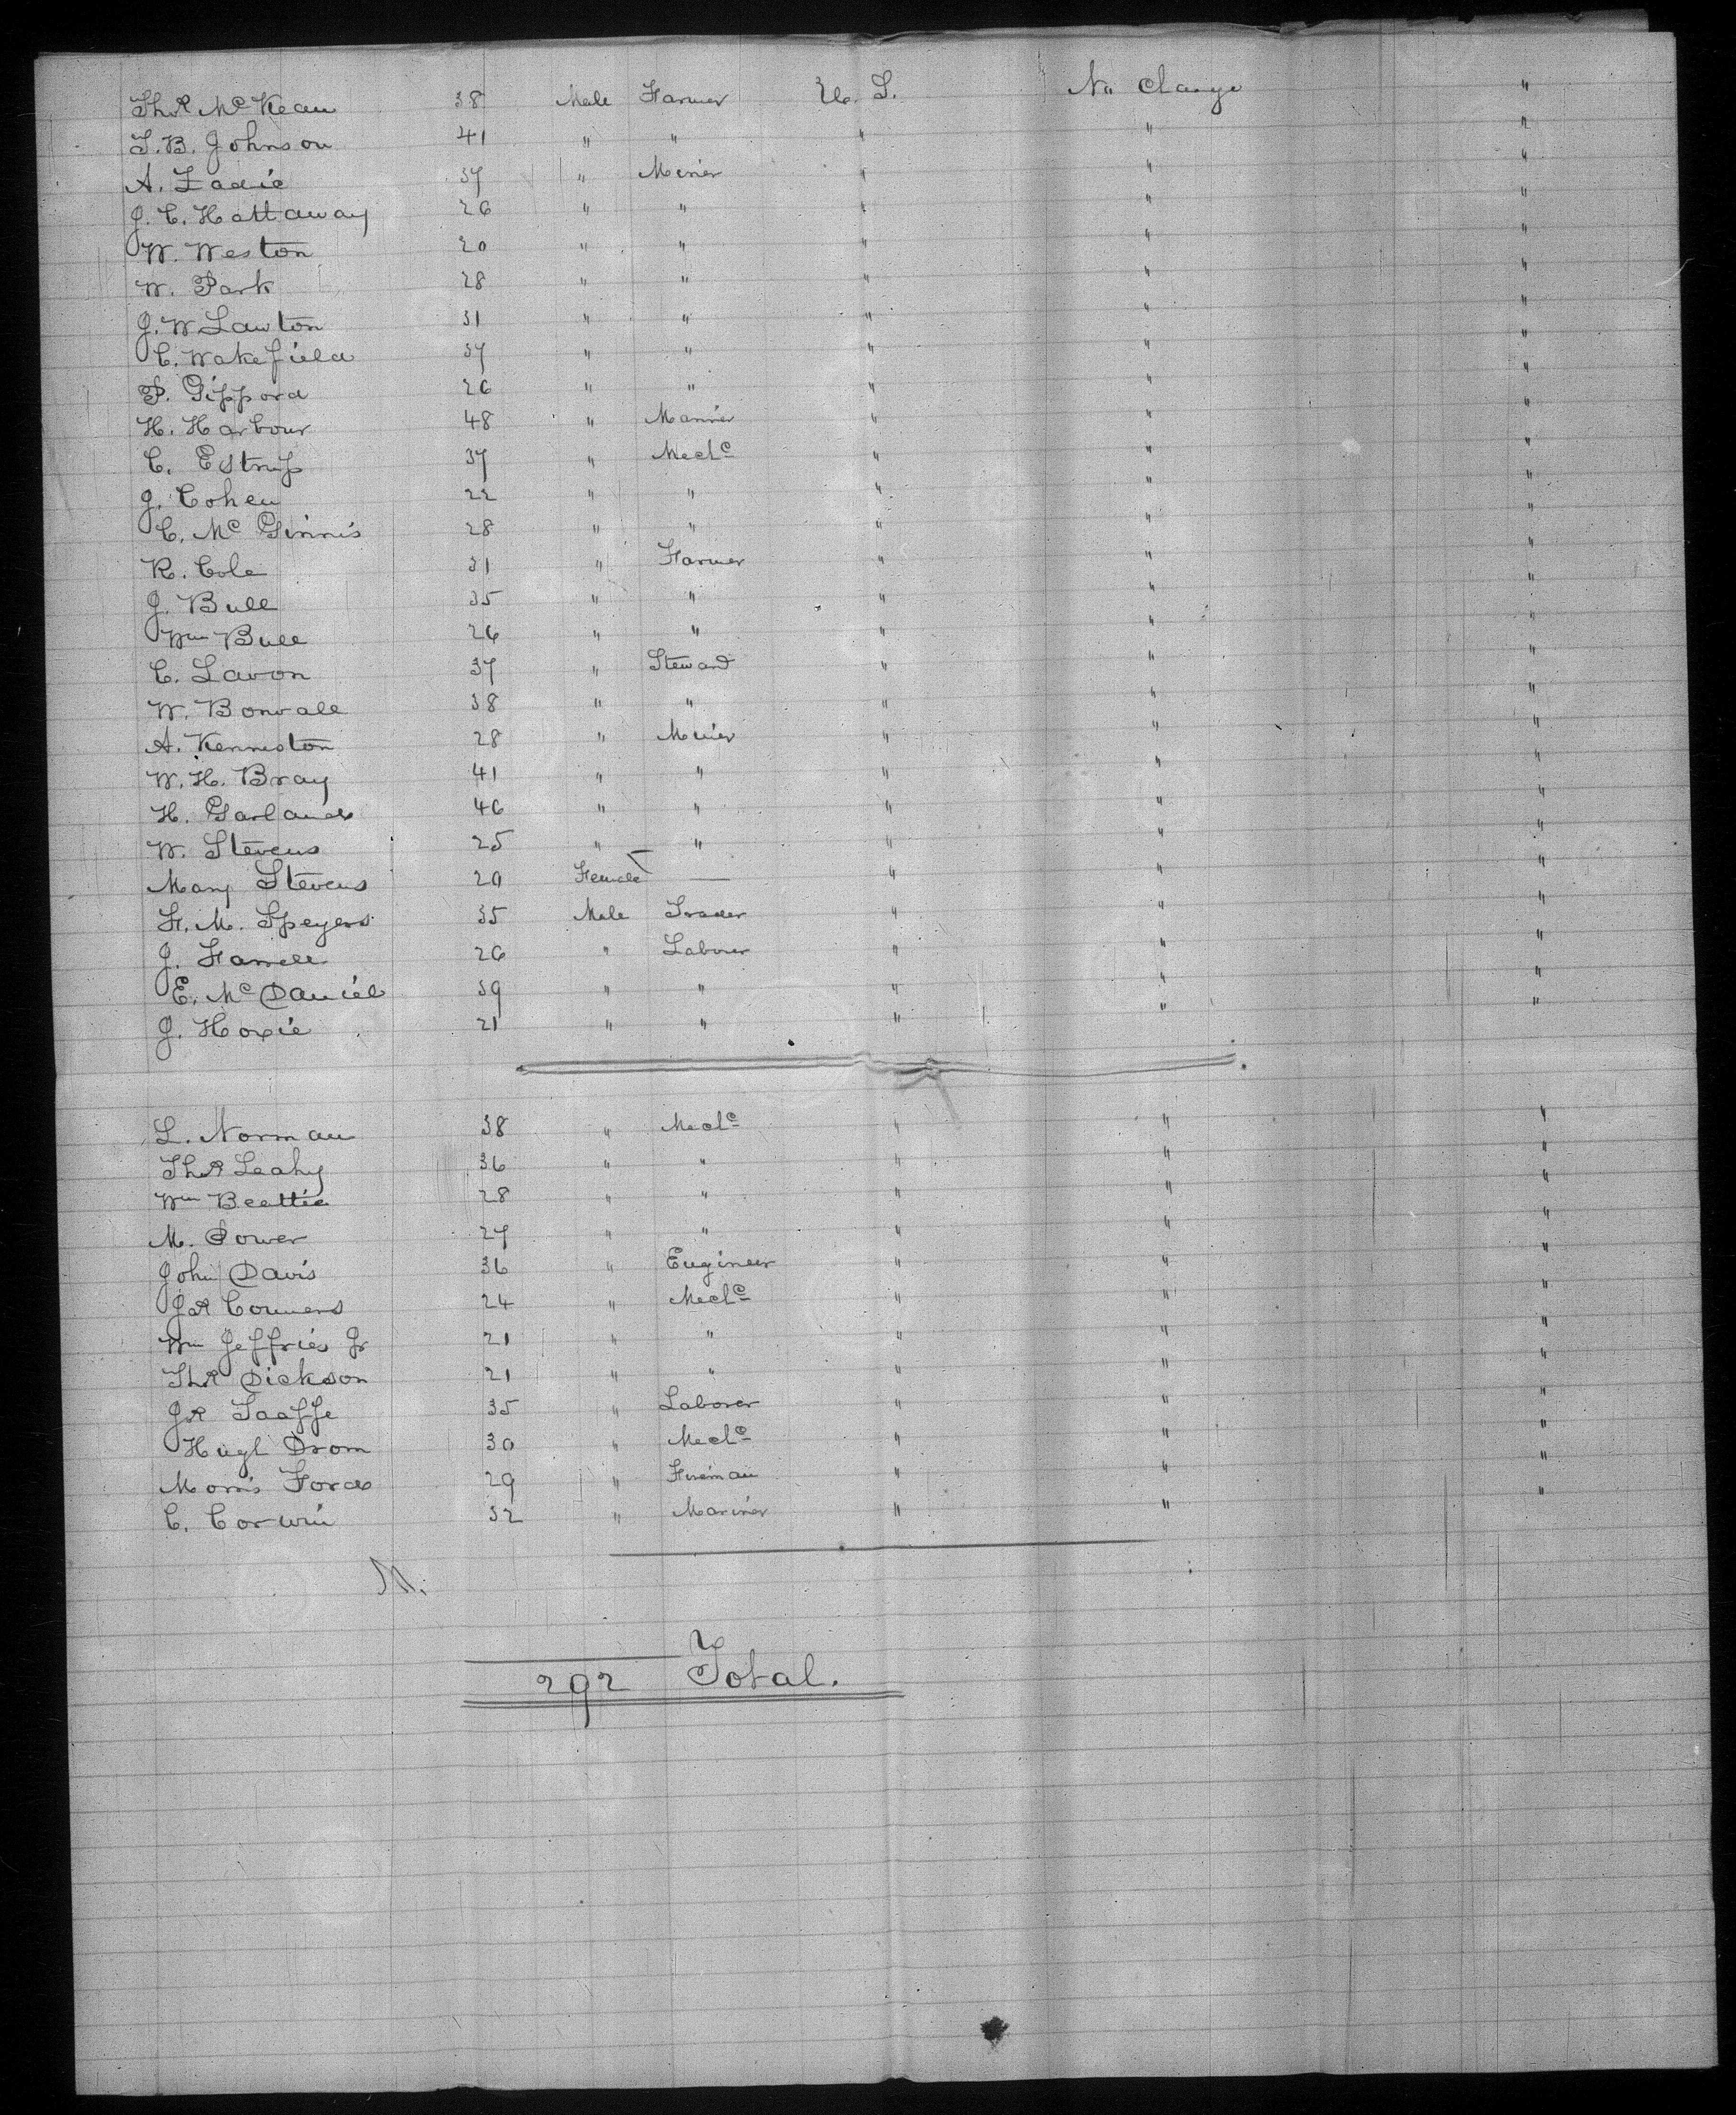 Thos McKean 38 Male Farmer U. S. No Change "
T. B. Johnson 41 " " " " "
A. Eadie 37 " Miner " " "
J. C. Hattaway 26 " " " " "
W. Weston 20 " " " " "
W. Park 28 " " " " "
J. W Lawton 31 " " " " "
C. Wakefield 37 " " " " "
P. Gippord 26 " " " " "
H. Harbour 48 " Mariner " " "
C. Estrup 37 " Mechc " " "
J. Cohen 22 " " " " "
C. Mc Ginnis 28 " " " " "
R. Cole 31 " Farmer " " "
J. Bull 35 " " " " "
Wm Bull 26 " " " " "
C. Lavon 37 " Steward " " "
W. Bonvale 38 " " " " "
A. Kenniston 28 " Miner " " "
W. H. Bray 41 " " " " "
H. Garland 46 " " " " "
W. Stevens 25 " " " " "
Mary Stevens 20 Female — " " "
F. M. Speyers 35 Male Trader " " "
J. Farrell 26 " Laborer " " "
E. Mc Daniel 39 " " " " "
J. Hoxie 21 " " " " "
L. Norman 38 " Mechc " " "
Thos Leahy 36 " " " " "
Wm Beattie 28 " " " " "
M. Power 27 " " " " "
John Davis 36 " Engineer " " "
Jas Conners 24 " Mechc " " "
Wm Jeffries Jr 21 " " " " "
Thos Dickson 21 " " " " "
Js Taaffe 35 " Laborer " " "
Hugh Drom 30 " Mechc " " "
Morris Ford 29 " Fireman " " "
C. Corwin 32 " Mariner " " "
292 Total.